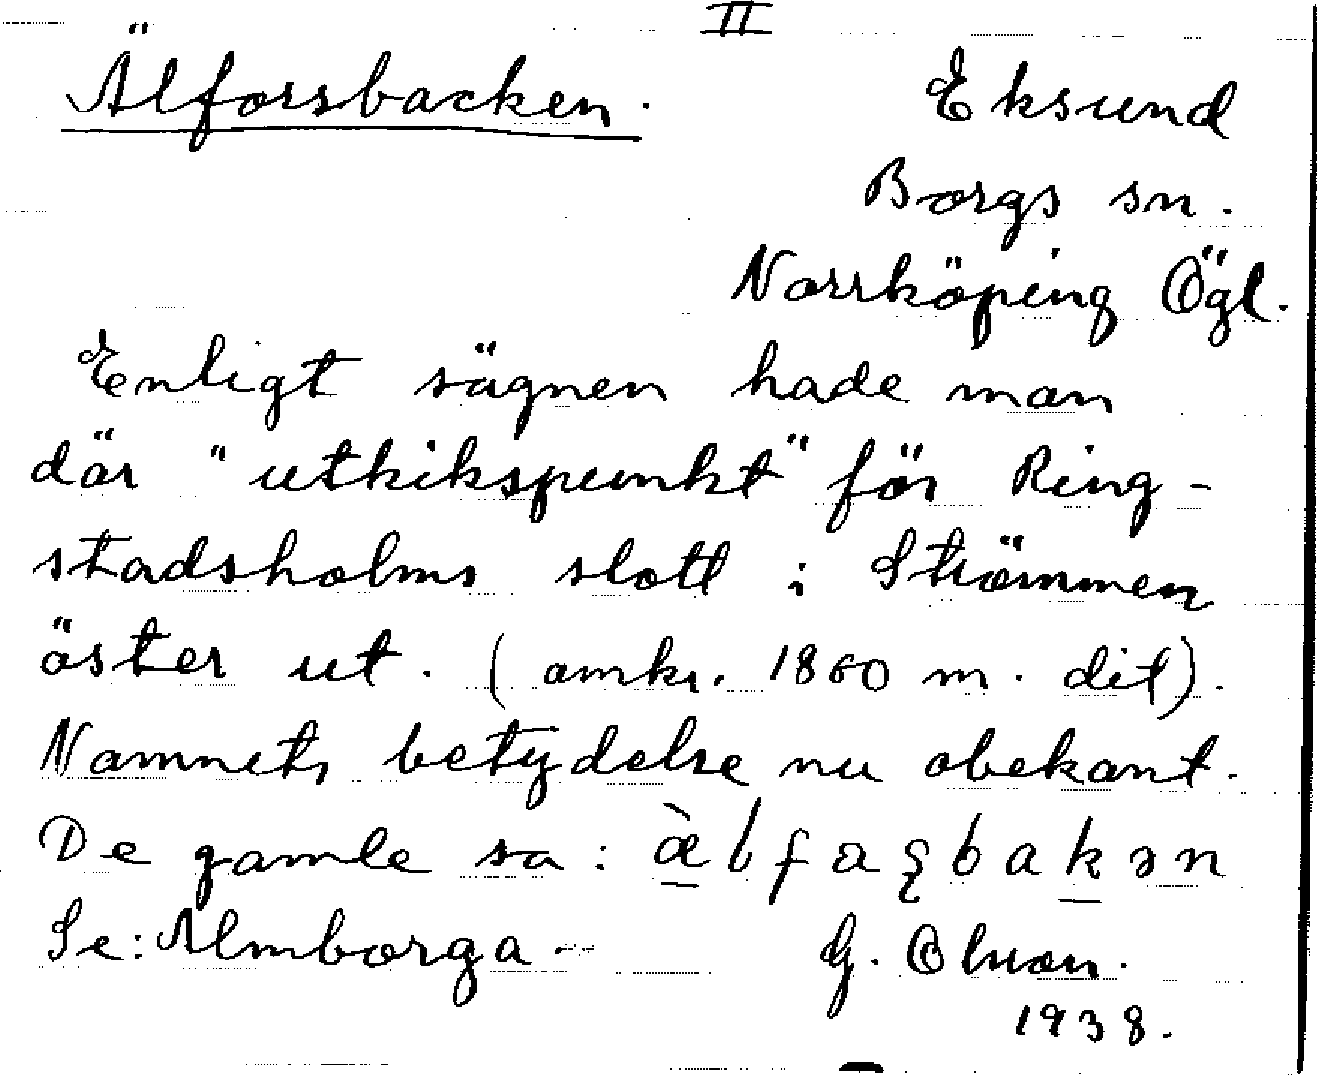 II
Älforsbacken. Eksund
Borgs sn.
Norrköping Ögl.
Enligt sägnen hade man
där "utkikspunkt" för Ring-
stadsholms slott i Strömmen
öster ut. (omkr. 1860 m. dit).
Namnets betydelse nu obekant.
De gamle sa:
Se: Almborga G. Olsson.
1938.